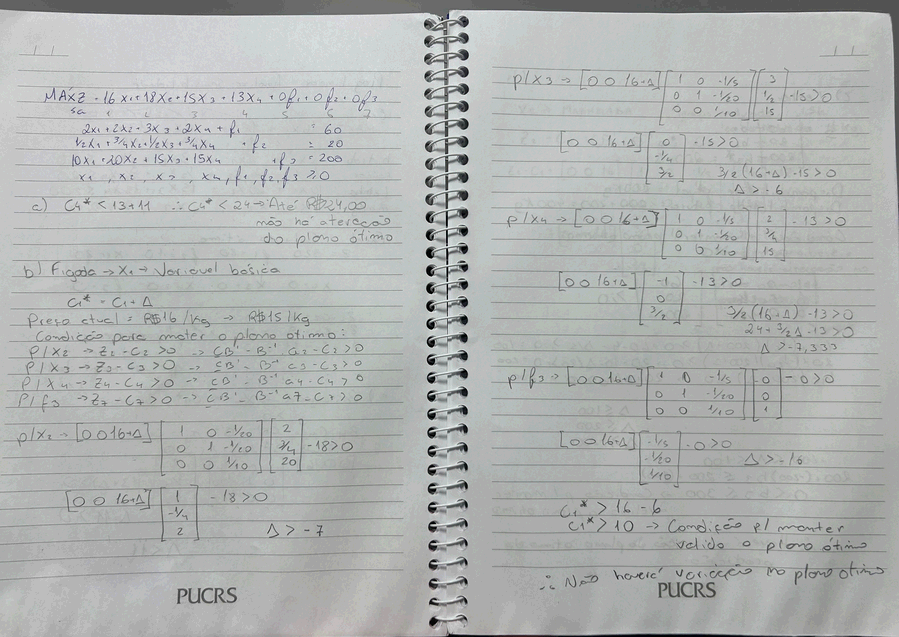 MÁX Z = 16x1+18x2+15x3+13x4+0f1+0f2+0f3
sa 1 2 3 4 5 6 7
2x1+2x2+3x3+2x4+f1 = 60
1/2x1+3/4x2+1/2x3+3/4x4 +f2 = 20
10x1+20x2+15x3+15x4 +f3 = 200
x1, x2, x3, x4, f1, f2, f3 ≥ 0
a) C4* < 13+11 ∴ C4* < 24 → Até R$24,00
não há alteração
do plano ótimo
b) Figada → x1 → Variavel básica
C1* = C1 + Δ
Preço atual = R$16/kg → R$15/kg
Condição para mater o plano ótimo:
P/ X2 → Z2 - C2 > 0 → CB' · B⁻¹ · a2 - C2 > 0
P/ X3 → Z3 - C3 > 0 → CB' · B⁻¹ · a3 - C3 > 0
P/ X4 → Z4 - C4 > 0 → CB' · B⁻¹ a4 - C4 > 0
P/ f3 → Z7 - C7 > 0 → CB' · B⁻¹ a7 - C7 > 0
p/x2 → [0 0 16+Δ] [1 0 -1/5 [2
0 1 -1/20 3/4 - 18 > 0
0 0 1/10] 20]
[0 0 16+Δ] [1 - 18 > 0
-1/4
2] Δ > -7
PUCRS
p/x3 → [0 0 16+Δ] [1 0 -1/5 [3
0 1 -1/20 1/2 - 15 > 0
0 0 1/10] 15]
[0 0 16+Δ] [0 - 15 > 0
-1/4
3/2] 3/2 (16+Δ) - 15 > 0
Δ > -6
p/x4 → [0 0 16+Δ] [1 0 -1/5 [2 - 13 > 0
0 1 -1/20 3/4
0 0 1/10] 15]
[0 0 16+Δ] [-1 - 13 > 0
0
3/2] 3/2 (16+Δ) - 13 > 0
24 + 3/2 Δ - 13 > 0
Δ > -7,333
p/f3 → [0 0 16+Δ] [1 0 -1/5 [0 - 0 > 0
0 1 -1/20 0
0 0 1/10] 1]
[0 0 16+Δ] [-1/5 - 0 > 0
-1/20 Δ > -16
1/10]
C1* > 16 - 6
C1* > 10 → Condição p/ manter
valido o plano ótimo
∴ Não haverá variação no plano ótimo
PUCRS